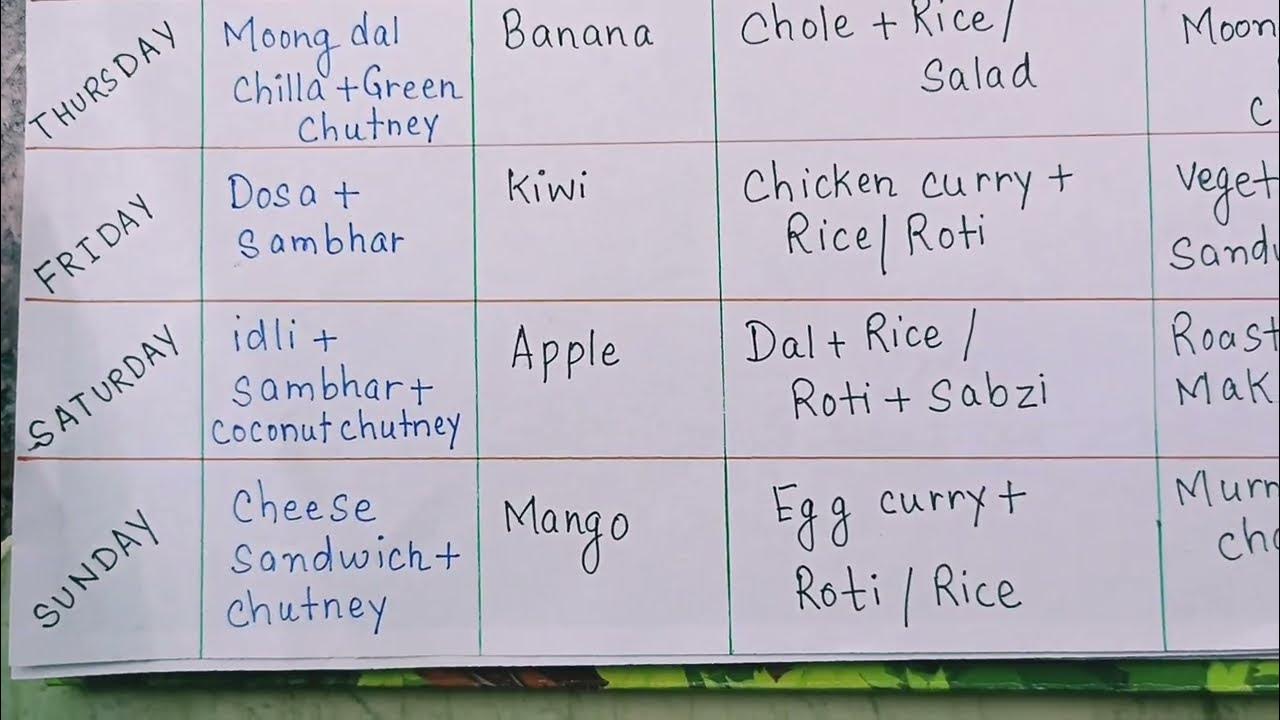 THURSDAY
Moong dal
Chilla + Green
Chutney
Banana
Chole + Rice /
Salad
FRIDAY
Dosa +
Sambhar
Kiwi
Chicken curry +
Rice / Roti
SATURDAY
idli +
Sambhar +
Coconut chutney
Apple
Dal + Rice /
Roti + Sabzi
Roast
Mak
SUNDAY
Cheese
Sandwich +
Chutney
Mango
Egg curry +
Roti / Rice